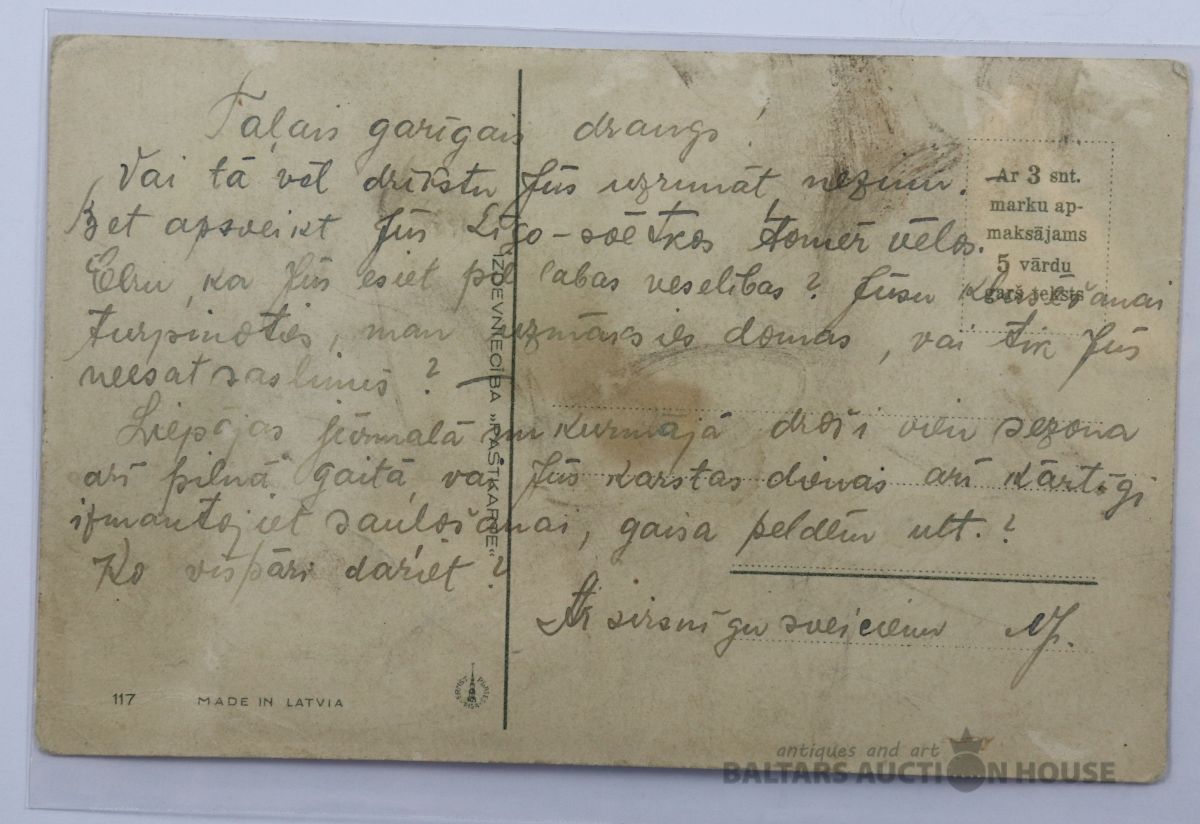 Taļais garīgais draugs!
Vai tā vēl drīkstu Jūs uzrunāt nezinu.
Bet apsveikt Jūs Līgo-svētkos tomēr vēlos.
Ceru, ka Jūs esiet pie labas veselības? Jūsu klusēšanai
turpinoties, man uzmācās domas, vai tik Jūs
neesat saslimis? —
Liepājas jūrmalā un kūrmājā droši vien sezona
arī pilnā gaitā, vai Jūs karstas dienas arī kārtīgi
izmantojiet sauļošanai, gaisa peldēm utt.?
Ko vispāri dariet?
Ar sirsnīgu sveicienu
Ar 3 snt.
marku ap-
maksājams
5 vārdu
garš teksts
IZDEVNIECĪBA „PASTKARTE"
117 MADE IN LATVIA
antiques and art
BALTARS AUCTION HOUSE